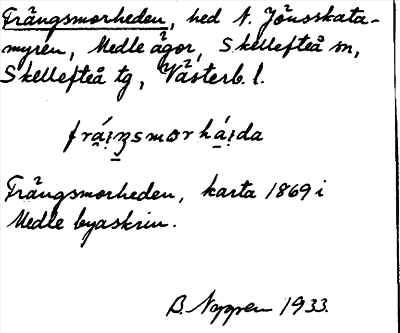 Trängsmorheden, hed N. Jönsskata-
myren, Medle ägor, Skellefteå sn,
Skellefteå tg, Västerb. l.
Trängsmorheden, karta 1869 i
Medle byaskrin.
B. Nyppen 1933.